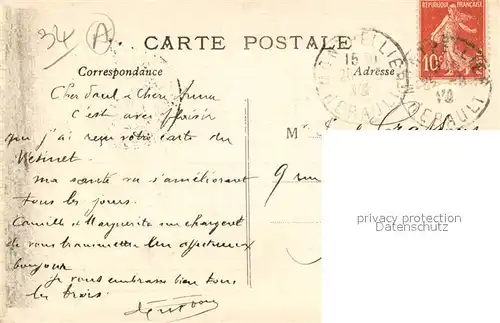 34 A
CARTE POSTALE
RÉPUBLIQUE FRANÇAISE
10c
MONTPELLIER
HERAULT
Correspondance
Adresse
Cher Paul & Chère
C'est avec plaisir
que j'ai reçu votre carte du
Vésinet
M
9 rue
ma santé va s'améliorant
tous les jours.
Camille et Marguerite me chargent
de vous transmettre leur affectueux
bonjour
je vous embrasse bien tous
les trois.
privacy protection
Datenschutz